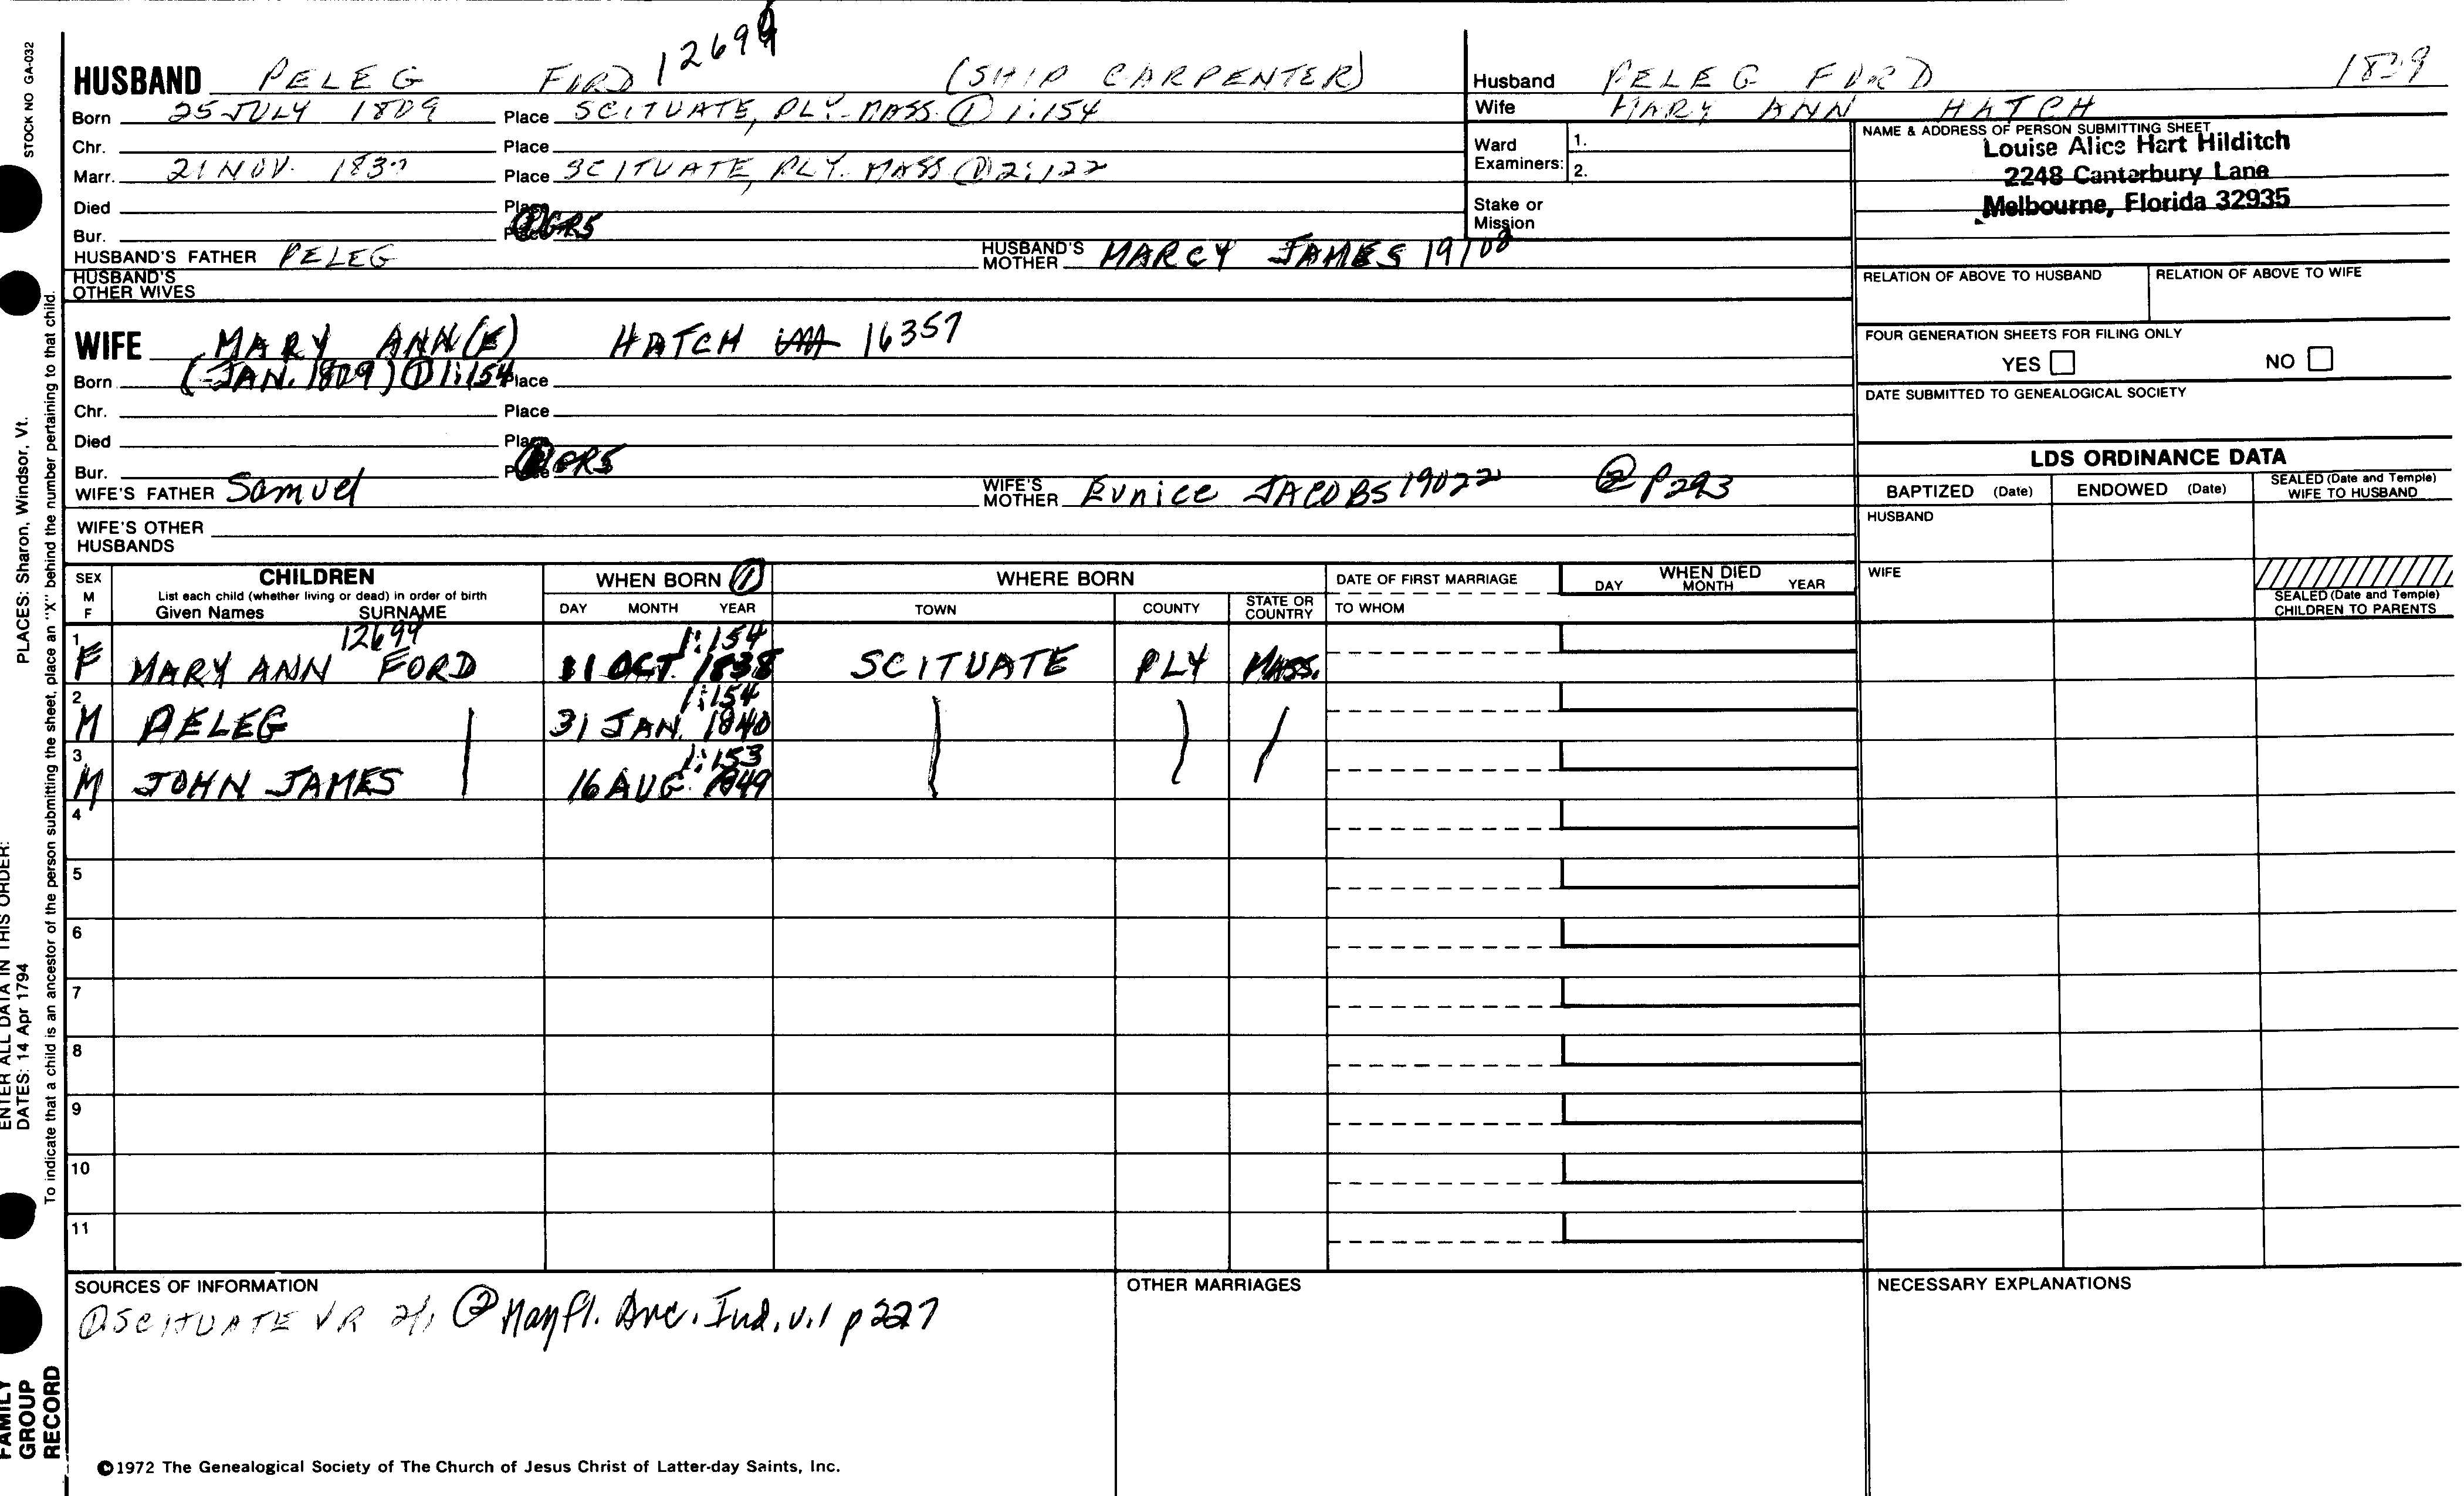 STOCK NO GA-032
PLACES: Sharon, Windsor, Vt.
ENTER ALL DATA IN THIS ORDER:
DATES: 14 Apr 1794
To indicate that a child is an ancestor of the person submitting the sheet, place an "X" behind the number pertaining to that child.
FAMILY
GROUP
RECORD
HUSBAND PELEG FORD 12699 (SHIP CARPENTER)
Born 25 JULY 1809 Place SCITUATE, PLY. MASS. ① 1:154
Chr. Place
Marr. 21 NOV. 1837 Place SCITUATE, PLY. MASS ① 2:122
Died Place
Bur. Place GR5
HUSBAND'S FATHER PELEG HUSBAND'S MOTHER MARCY JAMES 19108
HUSBAND'S
OTHER WIVES
WIFE MARY ANN(E) HATCH 16357
Born (-JAN. 1809) ① 1:154 Place
Chr. Place
Died Place
Bur. Place GR5
WIFE'S FATHER Samuel WIFE'S MOTHER Eunice JACOBS 19022 @ p293
WIFE'S OTHER
HUSBANDS
Husband PELEG FORD 1809
Wife MARY ANN HATCH
Ward
Examiners: 1.
2.
Stake or
Mission
NAME & ADDRESS OF PERSON SUBMITTING SHEET
Louise Alice Hart Hilditch
2248 Canterbury Lane
Melbourne, Florida 32935
RELATION OF ABOVE TO HUSBAND RELATION OF ABOVE TO WIFE
FOUR GENERATION SHEETS FOR FILING ONLY
YES NO
DATE SUBMITTED TO GENEALOGICAL SOCIETY
LDS ORDINANCE DATA
BAPTIZED (Date) ENDOWED (Date) SEALED (Date and Temple) WIFE TO HUSBAND
HUSBAND
WIFE
SEALED (Date and Temple)
CHILDREN TO PARENTS
SEX
M
F
CHILDREN
List each child (whether living or dead) in order of birth
Given Names SURNAME
WHEN BORN ①
DAY MONTH YEAR
WHERE BORN
TOWN COUNTY STATE OR COUNTRY
DATE OF FIRST MARRIAGE
TO WHOM
WHEN DIED
DAY MONTH YEAR
12699 1:154
1 F MARY ANN FORD 11 OCT. 1838 SCITUATE PLY MASS.
1:154
2 M PELEG 31 JAN. 1840
1:153
3 M JOHN JAMES 16 AUG. 1849
4
5
6
7
8
9
10
11
SOURCES OF INFORMATION
① SCITUATE VR ② Mayfl. Anc. Ind. v.1 p 227
OTHER MARRIAGES
NECESSARY EXPLANATIONS
©1972 The Genealogical Society of The Church of Jesus Christ of Latter-day Saints, Inc.